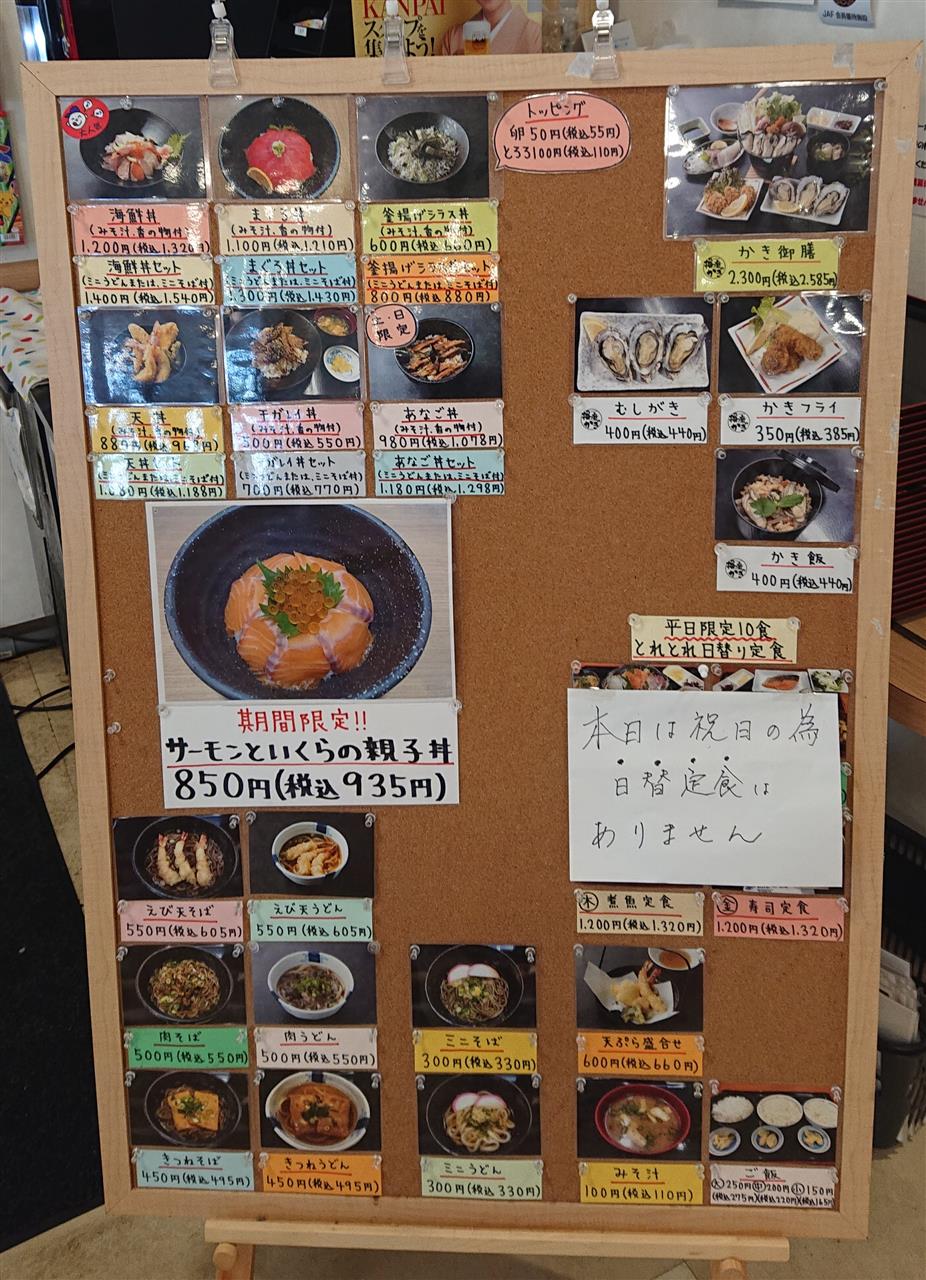 KANPAI
集めよう!
JAF 会員優待施設
トッピング
卵 50円(税込55円)
とろろ100円(税込110円)
海鮮丼
(みそ汁、香の物付)
1,200円(税込1,320円)
まぐろ丼
(みそ汁、香の物付)
1,100円(税込1,210円)
釜揚げシラス丼
(みそ汁、香の物付)
600円(税込660円)
海鮮丼セット
(ミニうどんまたは、ミニそば付)
1,400円(税込1,540円)
まぐろ丼セット
(ミニうどんまたは、ミニそば付)
1,300円(税込1,430円)
釜揚げシラス丼セット
(ミニうどんまたは、ミニそば付)
800円(税込880円)
かき御膳
2,300円(税込2,585円)
土・日
限定
天丼
(みそ汁、香の物付)
889円(税込968円)
(みそ汁、香の物付)
500円(税込550円)
あなご丼
(みそ汁、香の物付)
980円(税込1,078円)
天丼セット
(ミニうどんまたは、ミニそば付)
1,080円(税込1,188円)
(ミニうどんまたは、ミニそば付)
700円(税込770円)
あなご丼セット
(ミニうどんまたは、ミニそば付)
1,180円(税込1,298円)
むしがき
400円(税込440円)
かきフライ
350円(税込385円)
かき飯
400円(税込440円)
期間限定!!
サーモンといくらの親子丼
850円(税込935円)
平日限定10食
とれとれ日替り定食
本日は祝日の為
日替定食は
ありません
木 煮魚定食
1,200円(税込1,320円)
金 寿司定食
1,200円(税込1,320円)
えび天そば
550円(税込605円)
えび天うどん
550円(税込605円)
肉そば
500円(税込550円)
肉うどん
500円(税込550円)
ミニそば
300円(税込330円)
天ぷら盛合せ
600円(税込660円)
きつねそば
450円(税込495円)
きつねうどん
450円(税込495円)
ミニうどん
300円(税込330円)
みそ汁
100円(税込110円)
ご飯
大250円 中200円 小150円
(税込275円)(税込220円)(税込165円)